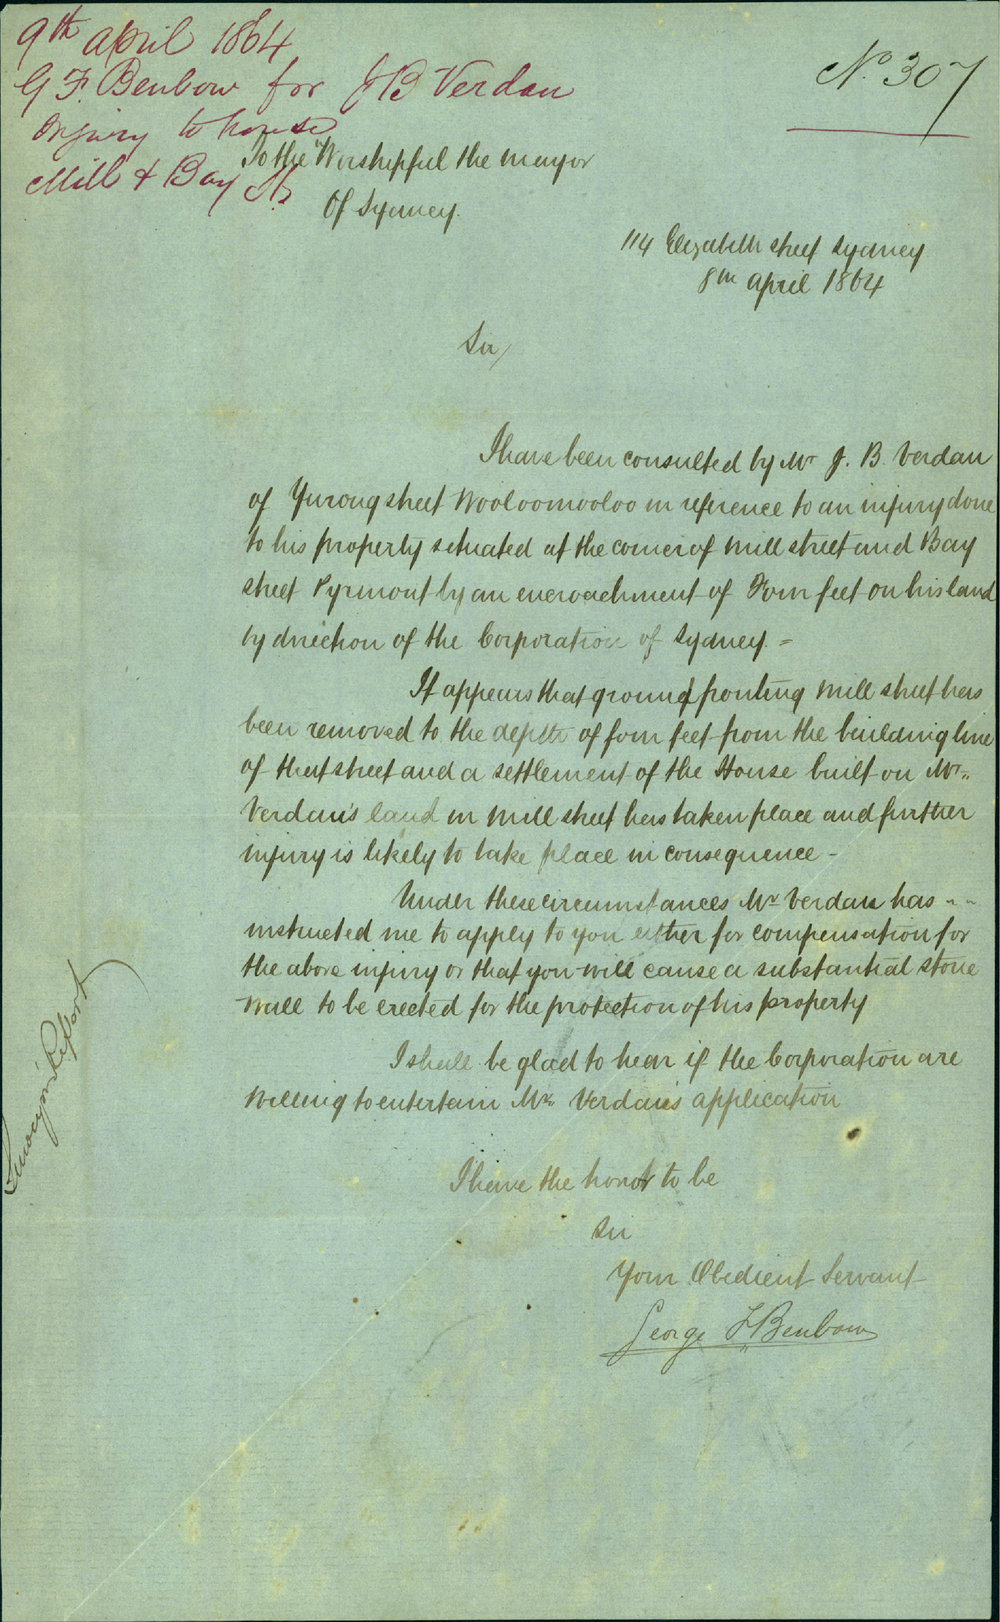 9th April 1864
G F. Benbow for J B Verdan
Injury to house
Mill & Bay St
No. 307
To the Worshipful the Mayor
Of Sydney.
114 Elizabeth street Sydney
8th April 1864
Sir,
I have been consulted by Mr J. B. Verdan
of Yurong street Wooloomooloo in reference to an injury done
to his property situated at the corner of Mill street and Bay
street Pyrmont by an encroachment of Four feet on his land
by direction of the Corporation of Sydney. =
It appears that ground fronting Mill street has
been removed to the depth of four feet from the building line
of that street and a settlement of the House built on Mr.
Verdan's land in Mill street has taken place and further
injury is likely to take place in consequence -
Under these circumstances Mr Verdan has - -
instructed me to apply to you either for compensation for
the above injury or that you will cause a substantial stone
wall to be erected for the protection of his property
I shall be glad to hear if the Corporation are
willing to entertain Mr. Verdan's application
I have the honor to be
Sir
Your Obedient Servant
George F Benbow
Report